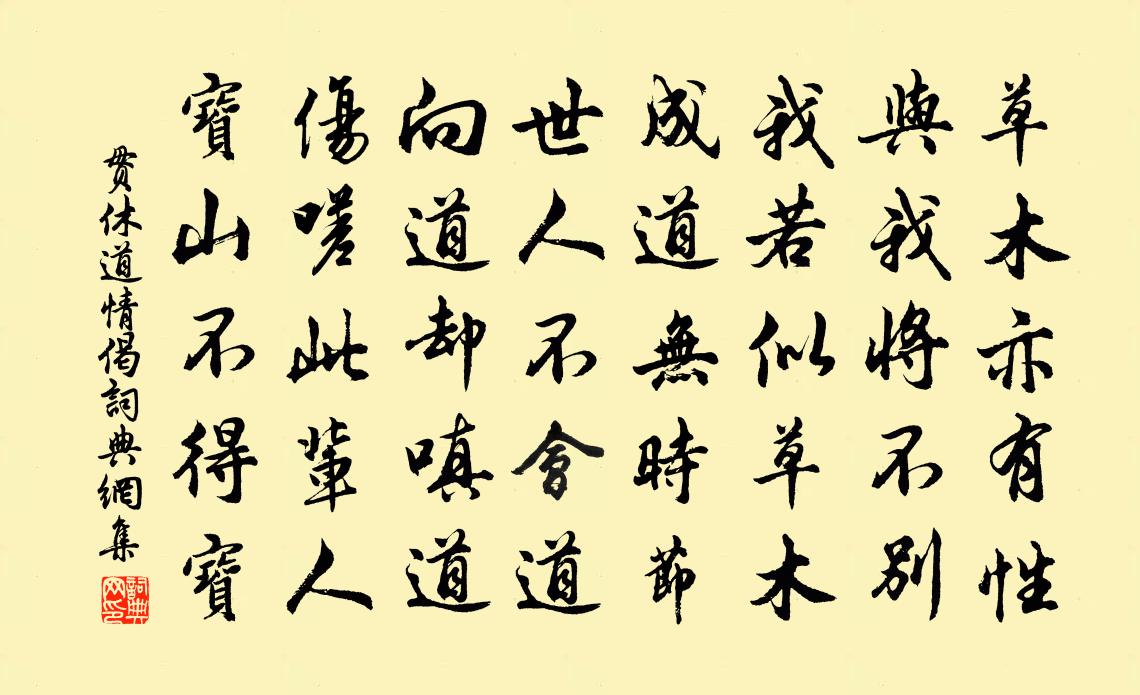 草木亦有性
與我將不別
我若似草木
成道無時節
世人不會道
向道却嗔道
傷嗟此輩人
寶山不得寶
貫休道情偈詞典網集
詞典
网印